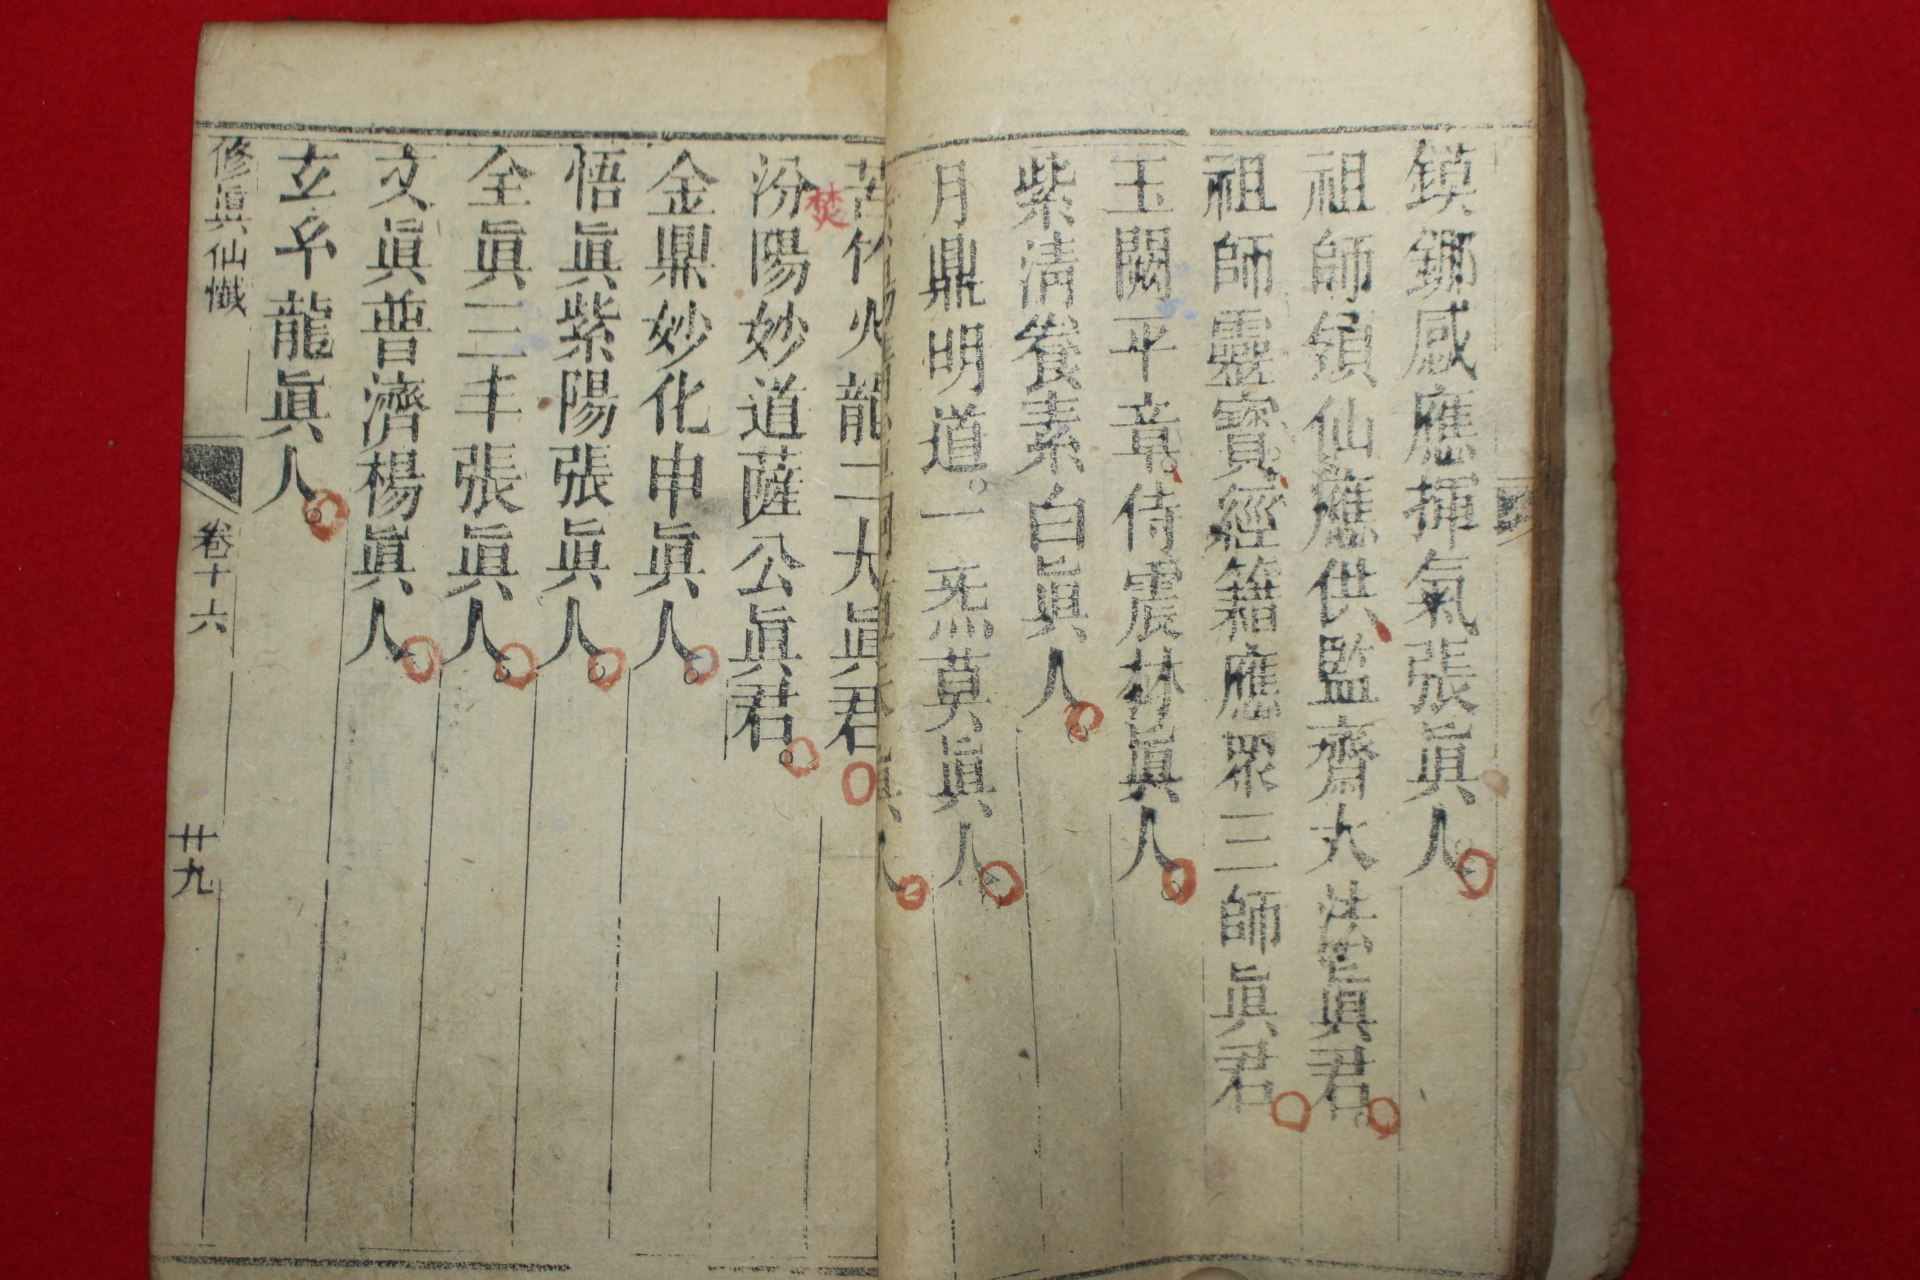 鏌鋣感應揮氣張眞人。
祖師領仙應供監齋大法眞君。
祖師靈寶經籍應眾三師眞君
玉闕平章。侍震林眞人。
紫清養素白眞人。
月鼎明道。一炁莫眞人。
苦竹火龍二大眞君
焚
汾陽妙道薩公眞君。
金鼎妙化申眞人。
悟眞紫陽張眞人。
全眞三丰張眞人。
文眞普濟楊眞人。
玄帝龍眞人。
修眞仙懺
卷十六
廿九